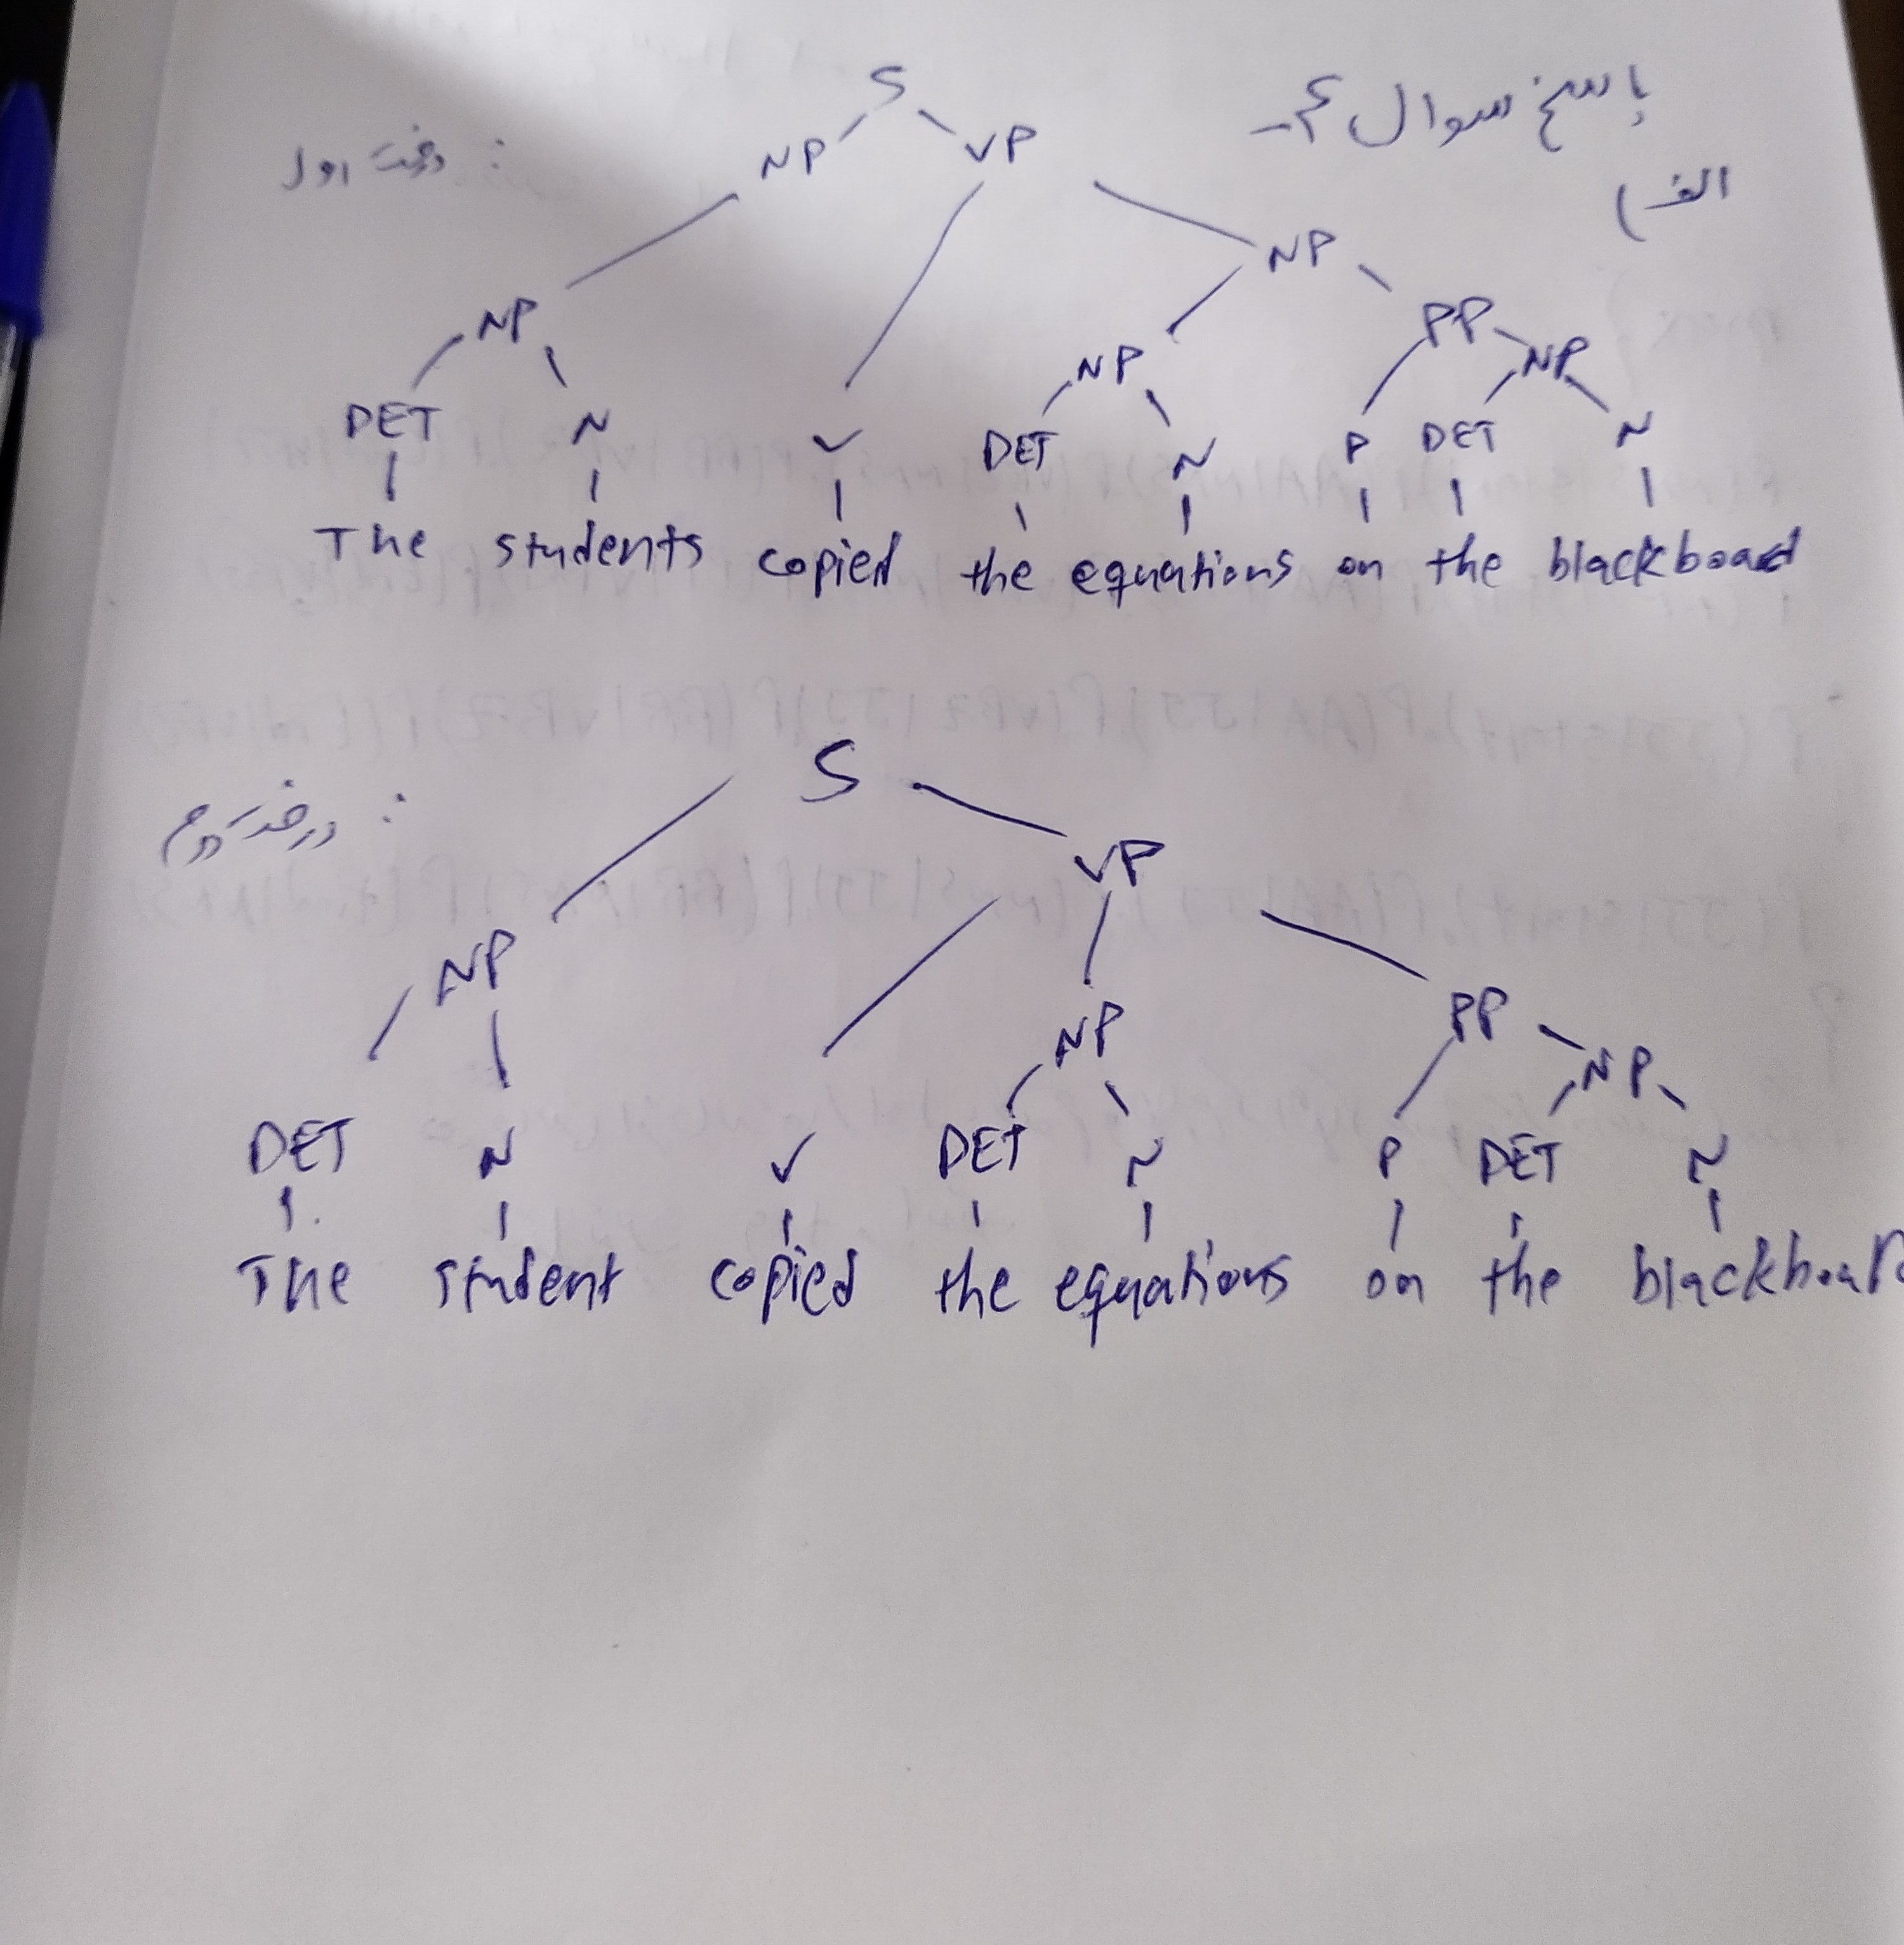 پاسخ سوال ۴-
الف)
درخت اول :
S
NP VP
NP
NP PP
NP NP
DET N V DET N P DET N
The students copied the equations on the blackboard
درخت دوم :
S
VP
NP
NP PP
NP
DET N V DET N P DET N
The student copied the equations on the blackboard